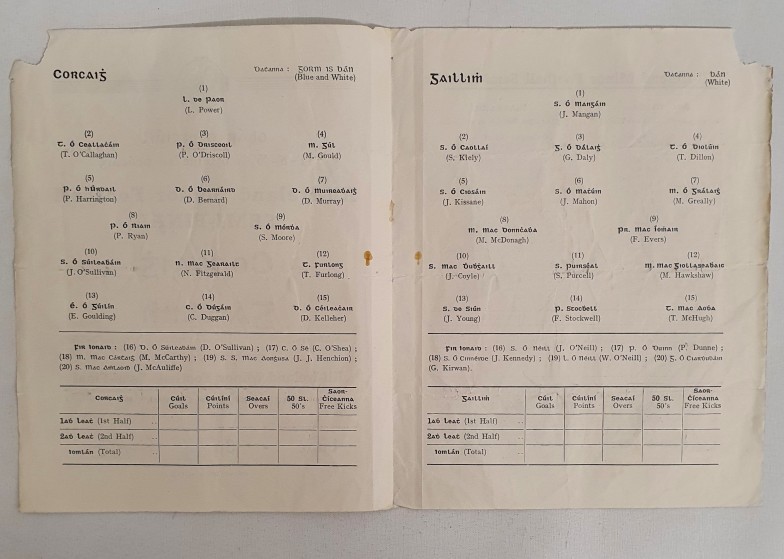 Corcaiġ
Daṫanna : Gorm is Bán
(Blue and White)
(1)
L. de Paor
(L. Power)
(2) (3) (4)
T. Ó Ceallaċáin P. Ó Driscoil M. Gúl
(T. O'Callaghan) (P. O'Driscoll) (M. Gould)
(5) (6) (7)
P. Ó D. Ó D. Ó Muireaḋaiġ
(P. Harrington) (D. Bernard) (D. Murray)
(8) (9)
P. Ó Riain S. Ó Mórḋa
(P. Ryan) (S. Moore)
(10) (11) (12)
S. Ó Súileaḃáin N. Mac Gearailt T. Furlong
(J. O'Sullivan) (N. Fitzgerald) (T. Furlong)
(13) (14) (15)
É. Ó C. Ó Dúgáin D. Ó Céileaċáir
(E. Goulding) (C. Duggan) (D. Kelleher)
Fir Ionaid : (16) D. Ó Súileaḃáin (D. O'Sullivan) ; (17) C. Ó Sé (C. O'Shea) ;
(18) M. Mac Cártaiġ (M. McCarthy) ; (19) S. S. Mac Aongusa (J. J. Henchion) ;
(20) S. Mac Aṁlaoiḃ (J. McAuliffe)
Corcaiġ Cúil Cúilíní Seacaí 50 Sl. Saor-Ċiceanna
Goals Points Overs 50's Free Kicks
1aḋ Leaṫ (1st Half) ..
2aḋ Leaṫ (2nd Half) ..
Iomlán (Total) ..
Gailliṁ
Daṫanna : Bán
(White)
(1)
S. Ó Mangáin
(J. Mangan)
(2) (3) (4)
S. Ó Caollaí G. Ó Dálaiġ T. Ó Diolúin
(S. Kiely) (G. Daly) (T. Dillon)
(5) (6) (7)
S. Ó Ciosáin S. Ó Maċúin M. Ó Grálaiġ
(J. Kissane) (J. Mahon) (M. Greally)
(8) (9)
M. Mac Donnċaḋa Pr. Mac Íoṁair
(M. McDonagh) (F. Evers)
(10) (11) (12)
S. Mac Duḃġaill S. Puirséal M. Mac Giollaspabaic
(J. Coyle) (S. Purcell) (M. Hawkshaw)
(13) (14) (15)
S. de Siún P. Stocbell T. Mac Aoḋa
(J. Young) (F. Stockwell) (T. McHugh)
Fir Ionaid : (16) S. Ó Néill (J. O'Neill) ; (17) P. Ó Duinn (P. Dunne) ;
(18) S. Ó Cinnéide (J. Kennedy) ; (19) L. Ó Néill (W. O'Neill) ; (20) G. Ó Ciardubáin
(G. Kirwan).
Gailliṁ Cúil Cúilíní Seacaí 50 Sl. Saor-Ċiceanna
Goals Points Overs 50's Free Kicks
1aḋ Leaṫ (1st Half) ..
2aḋ Leaṫ (2nd Half) ..
Iomlán (Total) ..